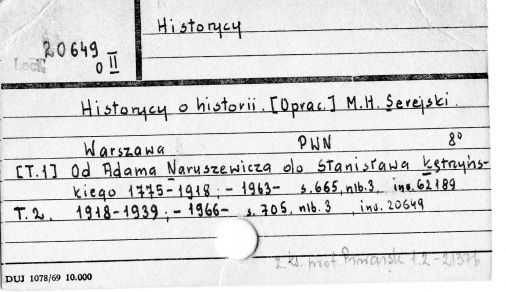 Historycy
20649
O II
Historycy o historii. [Oprac.] M.H. Serejski.
Warszawa PWN 8º
[T.1] Od Adama Naruszewicza do Stanisława Kętrzyńs-
kiego 1775-1918; - 1963- s.665, nlb.3, inw. 62189
T.2. 1918-1939; - 1966- s.705, nlb.3, inw. 20649
z ks. prof.
DUJ 1078/69 10.000